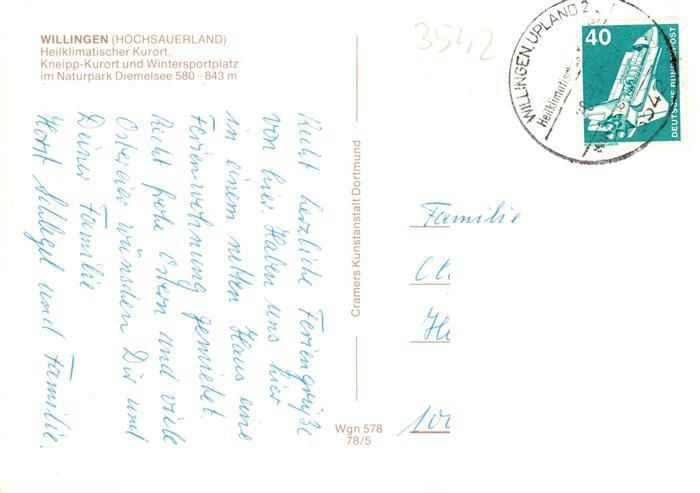 WILLINGEN (HOCHSAUERLAND)
Heilklimatischer Kurort,
Kneipp-Kurort und Wintersportplatz
im Naturpark Diemelsee 580–843 m
3542
WILLINGEN, UPLAND 2
Heilklimatisch
354
40
DEUTSCHE BUNDESPOST
Recht herzliche Feriengrüße
von hier. Haben uns hier
in einem netten Haus eine
Ferienwohnung gemietet.
Recht frohe Ostern und viele
Ostereier wünschen Dir und
Deiner Familie
Horst Schlegel und Familie.
Cramers Kunstanstalt Dortmund
Wgn 578
78/5
Familie